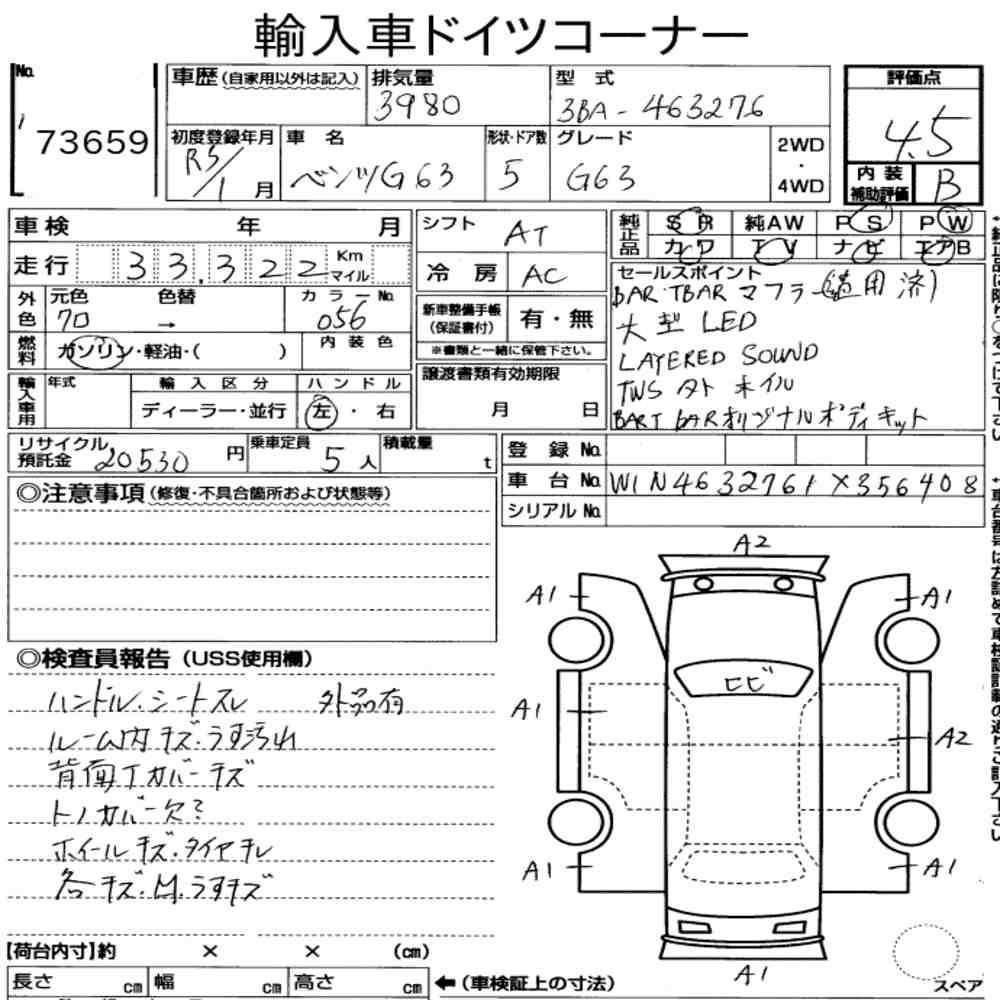 輸入車ドイツコーナー
No.
73659
車歴(自家用以外は記入)
排気量
3980
型式
3BA-463276
評価点
4.5
初度登録年月
R5/1月
車名
ベンツG63
形状・ドア数
5
グレード
G63
2WD
・
4WD
内装
補助評価
B
車検 年 月
シフト
AT
純正品
SR 純AW PS PW
カワ TV ナビ エアB
走行 33,322 Km
マイル
冷房
AC
セールスポイント
BAR・TBAR マフラー(適用済)
大型 LED
LAYERED SOUND
TWS タト ホイル
BART BARオリジナルボディキット
外色
元色
クロ
色替
→
カラーNo.
056
新車整備手帳
(保証書付)
有・無
※書類と一緒に保管下さい。
燃料
ガソリン・軽油・( )
内装色
譲渡書類有効期限
月 日
輸入車用
年式
輸入区分
ディーラー・並行
ハンドル
左・右
リサイクル
預託金 20530円
乗車定員
5人
積載量
t
登録No.
車台No. W1N4632761X356408
シリアルNo.
◎注意事項(修復・不具合箇所および状態等)
◎検査員報告(USS使用欄)
ハンドル・シートスレ
ルーム内キズ・うす汚れ
背面Tカバーキズ
トノカバー欠?
ホイールキズ・タイヤチレ
各キズ・M.うすキズ
A2
A1
A1
ヒビ
A1
A2
A1
A1
A1
スペア
【荷台内寸】約 × × (cm)
長さ cm 幅 cm 高さ cm
←(車検証上の寸法)